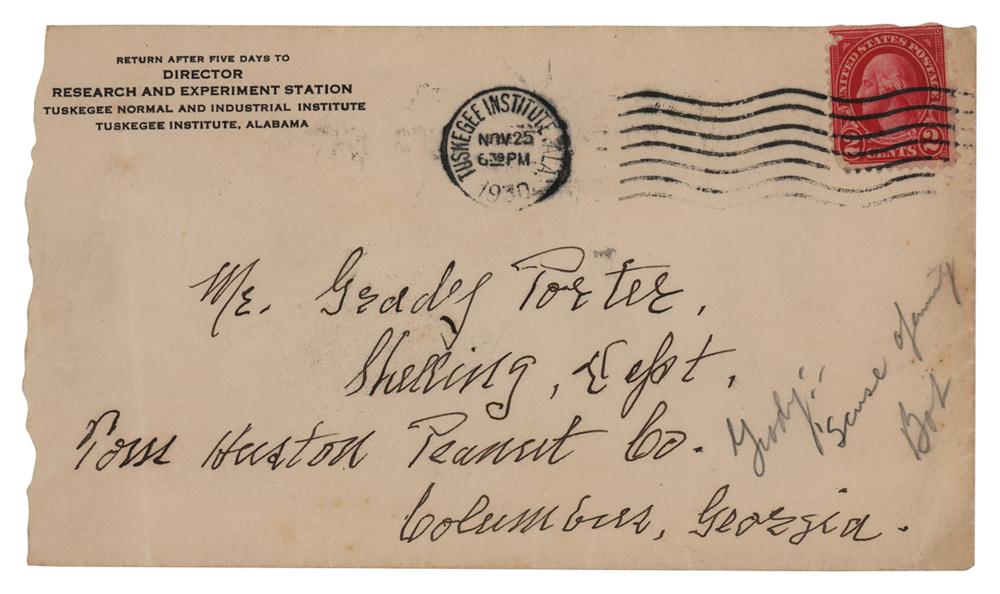 RETURN AFTER FIVE DAYS TO
DIRECTOR
RESEARCH AND EXPERIMENT STATION
TUSKEGEE NORMAL AND INDUSTRIAL INSTITUTE
TUSKEGEE INSTITUTE, ALABAMA
TUSKEGEE INSTITUTE, ALA.
NOV 25
6 30 PM
1930
UNITED STATES POSTAGE
2 CENTS 2
Mr. Grady Porter,
Shelling, Dept,
Tom Huston Peanut Co.
Columbus, Georgia.
Grady:-
Bob